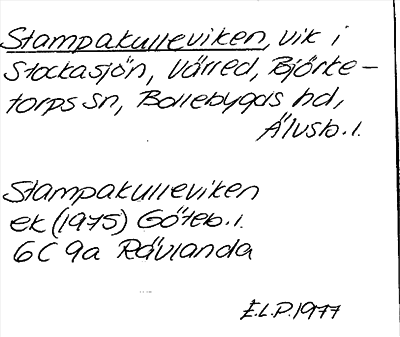 Stampakulleviken, vik i
Stockasjön, Värred, Björke-
torps sn, Bollebygds hd,
Älvsb. l.
Stampakulleviken
ek (1975) Göteb. l.
6C 9a Rävlanda
E.L.P. 1977